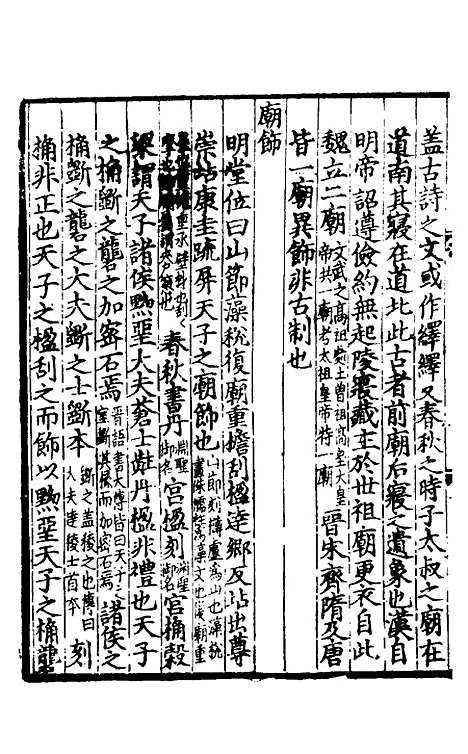 蓋古詩之文或作繹繹又春秋之時子太叔之廟在
道南其寢在道北此古者前廟后寢之遺象也漢自
明帝詔遵儉約無起陵寢藏主於世祖廟更衣自此
魏立二廟 文武之高祖處士曾祖高皇大皇帝共一廟考太祖皇帝特一廟 晉宋齊隋及唐
皆一廟異飾非古制也
廟飾
明堂位曰山節藻梲復廟重擔刮楹達鄉反坫出尊
崇坫康圭疏屏天子之廟飾也 山節刻欂盧為山也藻梲畫侏儒為藻文也復廟重
重承壁材也刻 春秋書丹 淵聖御名 宮楹刻 淵聖御名 宮桷穀
梁謂天子諸侯黝堊大夫蒼士黈丹楹非禮也天子
之桷斲之礱之加密石焉 晉語書大傳皆曰天子之室斲其椽而加密石焉 諸侯之
桷斲之礱之大夫斲之士斲本 斲之蓋後之也傳曰大夫達稜士首本 刻
桷非正也天子之楹刮之而飾以黝堊天子之桷礱